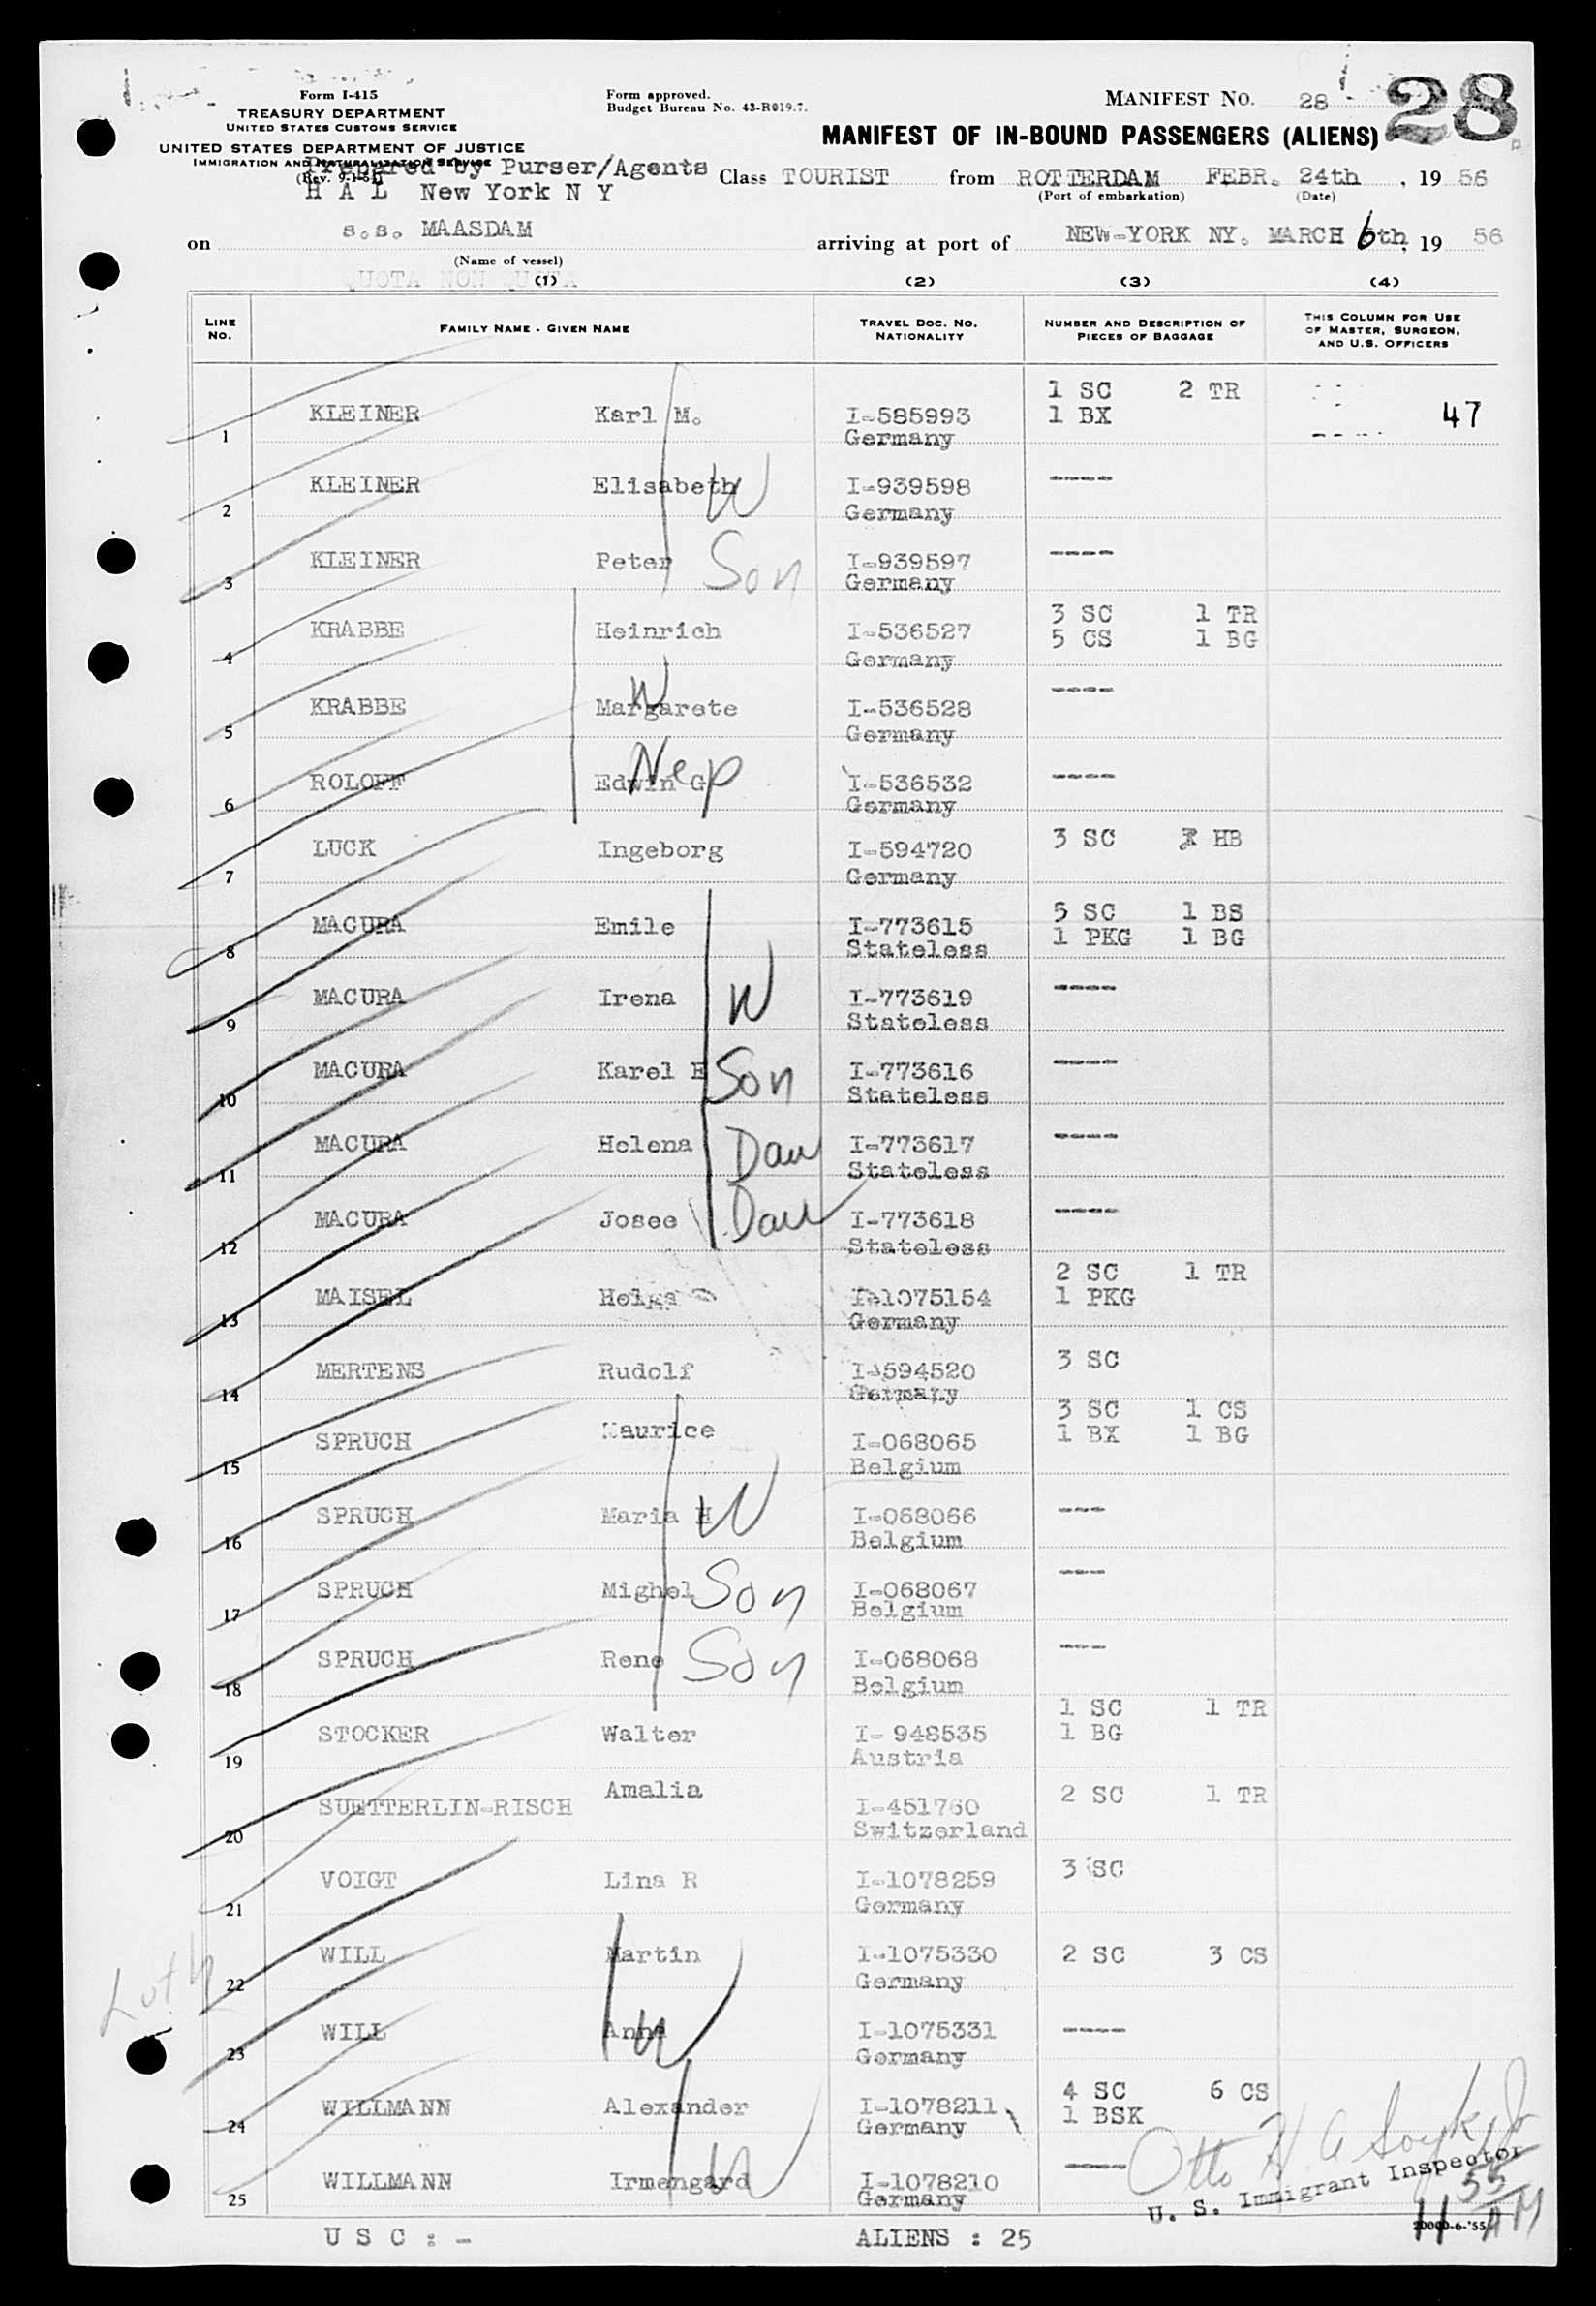 Form I-415
TREASURY DEPARTMENT
UNITED STATES CUSTOMS SERVICE
UNITED STATES DEPARTMENT OF JUSTICE
IMMIGRATION AND NATURALIZATION SERVICE
(Rev. 9-1-54)
Form approved.
Budget Bureau No. 43-R019.7.
MANIFEST NO. 28
28
MANIFEST OF IN-BOUND PASSENGERS (ALIENS)
Prepared by Purser/Agents
H A L New York N Y
Class TOURIST from ROTTERDAM FEBR. 24th, 19 56
(Port of embarkation) (Date)
on s.s. MAASDAM arriving at port of NEW-YORK NY. MARCH 6th, 19 56
(Name of vessel)
QUOTA NON QUOTA
(1) (2) (3) (4)
LINE NO. FAMILY NAME - GIVEN NAME TRAVEL DOC. NO. NATIONALITY NUMBER AND DESCRIPTION OF PIECES OF BAGGAGE THIS COLUMN FOR USE OF MASTER, SURGEON, AND U.S. OFFICERS
1 KLEINER Karl M. I-585993 Germany 1 SC 2 TR 1 BX 47
2 KLEINER Elisabeth W I-939598 Germany ----
3 KLEINER Peter Son I-939597 Germany ----
4 KRABBE Heinrich I-536527 Germany 3 SC 1 TR 5 CS 1 BG
5 KRABBE Margarete W I-536528 Germany ----
6 ROLOFF Edwin G Nep I-536532 Germany ----
7 LUCK Ingeborg I-594720 Germany 3 SC HB
8 MACURA Emile I-773615 Stateless 5 SC 1 BS 1 PKG 1 BG
9 MACURA Irena W I-773619 Stateless ----
10 MACURA Karel E Son I-773616 Stateless ----
11 MACURA Helena Dau I-773617 Stateless ----
12 MACURA Josee Dau I-773618 Stateless ----
13 MAISEL Helga I-1075154 Germany 2 SC 1 TR 1 PKG
14 MERTENS Rudolf I-594520 Germany 3 SC
15 SPRUCH Maurice I-068065 Belgium 3 SC 1 CS 1 BX 1 BG
16 SPRUCH Maria H W I-068066 Belgium ---
17 SPRUCH Mighel Son I-068067 Belgium ---
18 SPRUCH Rene Son I-068068 Belgium ---
19 STOCKER Walter I- 948535 Austria 1 SC 1 TR 1 BG
20 SUETTERLIN-RISCH Amalia I-451760 Switzerland 2 SC 1 TR
21 VOIGT Lina R I-1078259 Germany 3 SC
Luth
22 WILL Martin I-1075330 Germany 2 SC 3 CS
23 WILL Anna W I-1075331 Germany ----
24 WILLMANN Alexander I-1078211 Germany 4 SC 6 CS 1 BSK
25 WILLMANN Irmengard W I-1078210 Germany ----
Otto H. A
U. S. Immigrant Inspector
11 55 AM
U S C : - ALIENS : 25
20000-6-'55